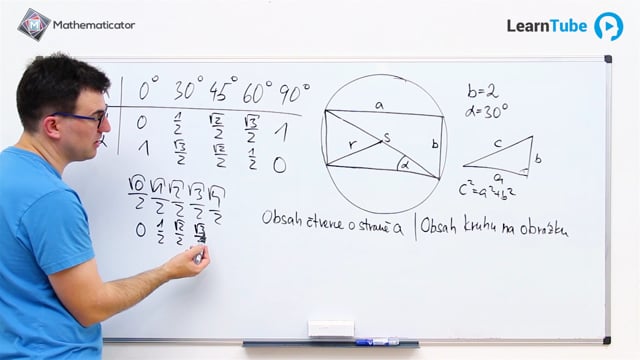 Mathematicator
LearnTube
0° 30° 45° 60° 90°
0 1/2 √2/2 √3/2 1
1 √3/2 √2/2 1/2 0
√0/2 √1/2 √2/2 √3/2 √4/2
0 1/2 √2/2 √3/2
a
r
S
α
b
b=2
α=30°
c
b
a
c²=a²+b²
Obsah čtverce o straně a | Obsah kruhu na obrázku